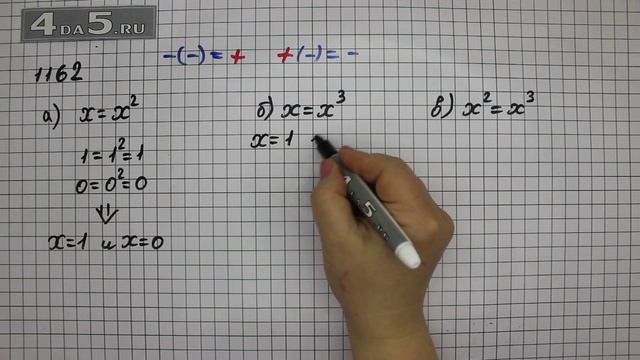 4DA5.RU
-(-) = + +(-) = -
1162
а) x = x²
1 = 1² = 1
0 = 0² = 0
⇓
x = 1 и x = 0
б) x = x³
x = 1
в) x² = x³